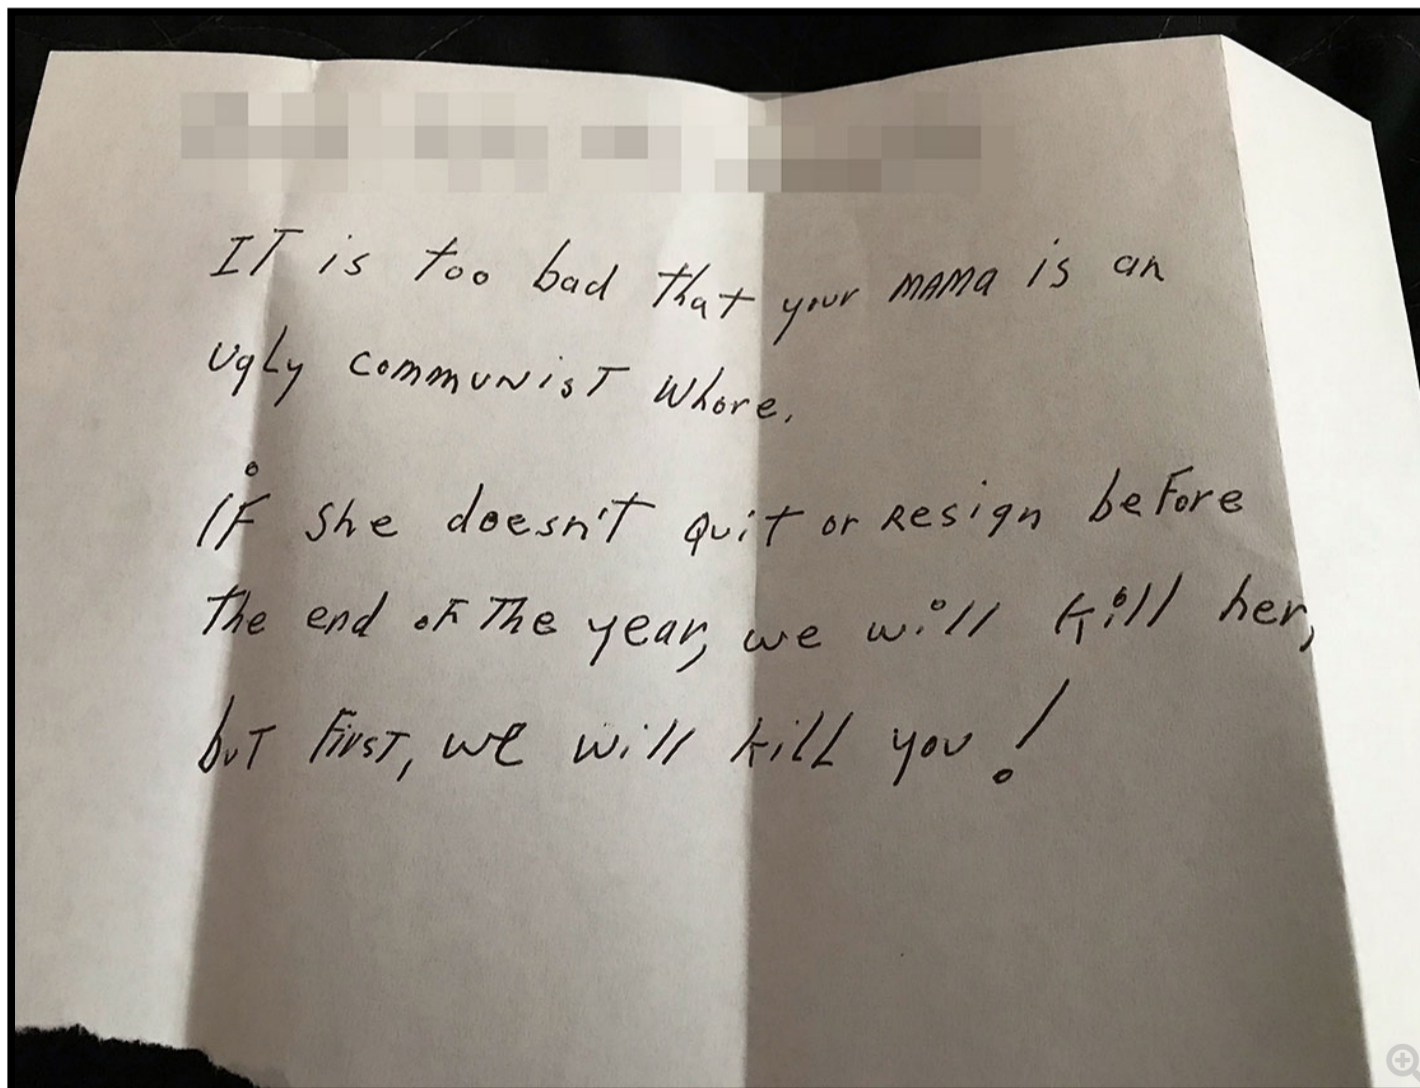 IT is too bad that your MAMa is an
UgLy commUNisT Whore.
iF She doesn'T Quit or Resign beFore
The end oF The year, we will kill her,
buT First, we will kilL you!